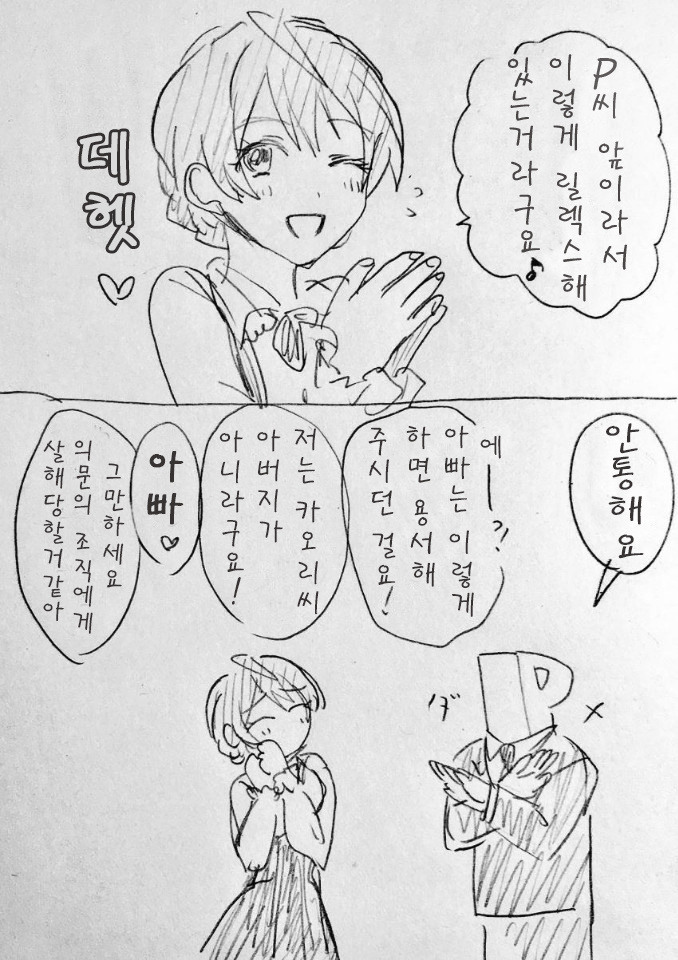 P씨 앞이라서
이렇게 릴렉스해
있는거라구요♪
데헷♡
안통해요
에ー?
아빠는 이렇게
하면 용서해
주시던 걸요!
저는 카오리씨
아버지가
아니라구요!
아빠♡
그만하세요
의문의 조직에게
살해당할거같아
P
×